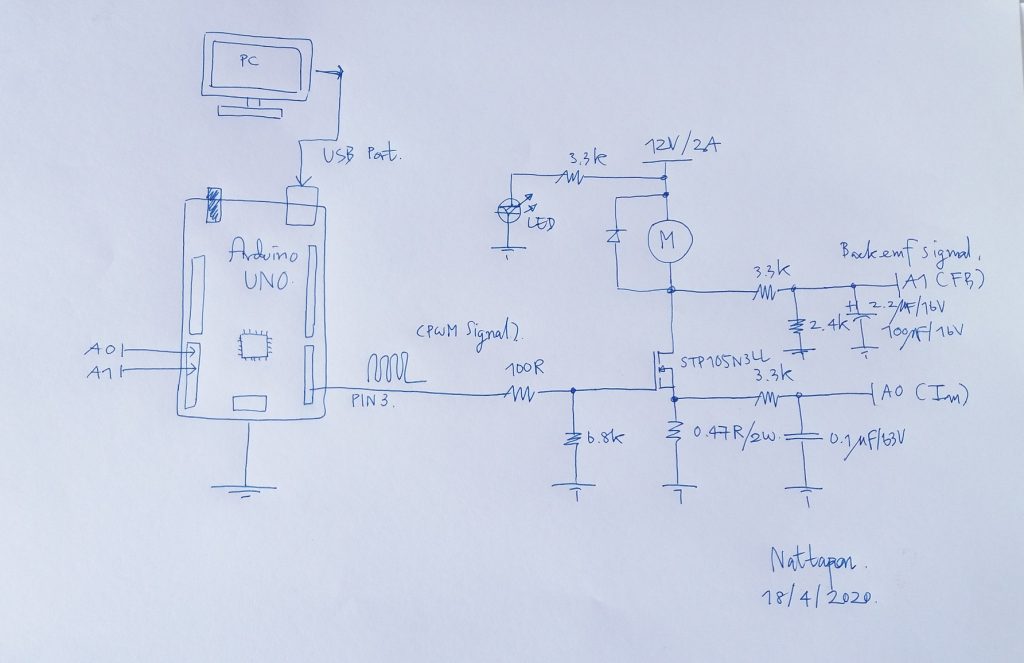 PC
USB Port.
12V/2A
3.3k
LED
Arduino
UNO.
M
Back emf signal.
3.3k
A1 (FB)
2.4k
+
2.2µF/16V
100µF/16V
(PWM Signal)
A0
A1
PIN 3.
100R
STP105N3LL
3.3k
A0 (Im)
6.8k
0.47R/2W.
0.1µF/63V
Nattapon.
18/4/2020.